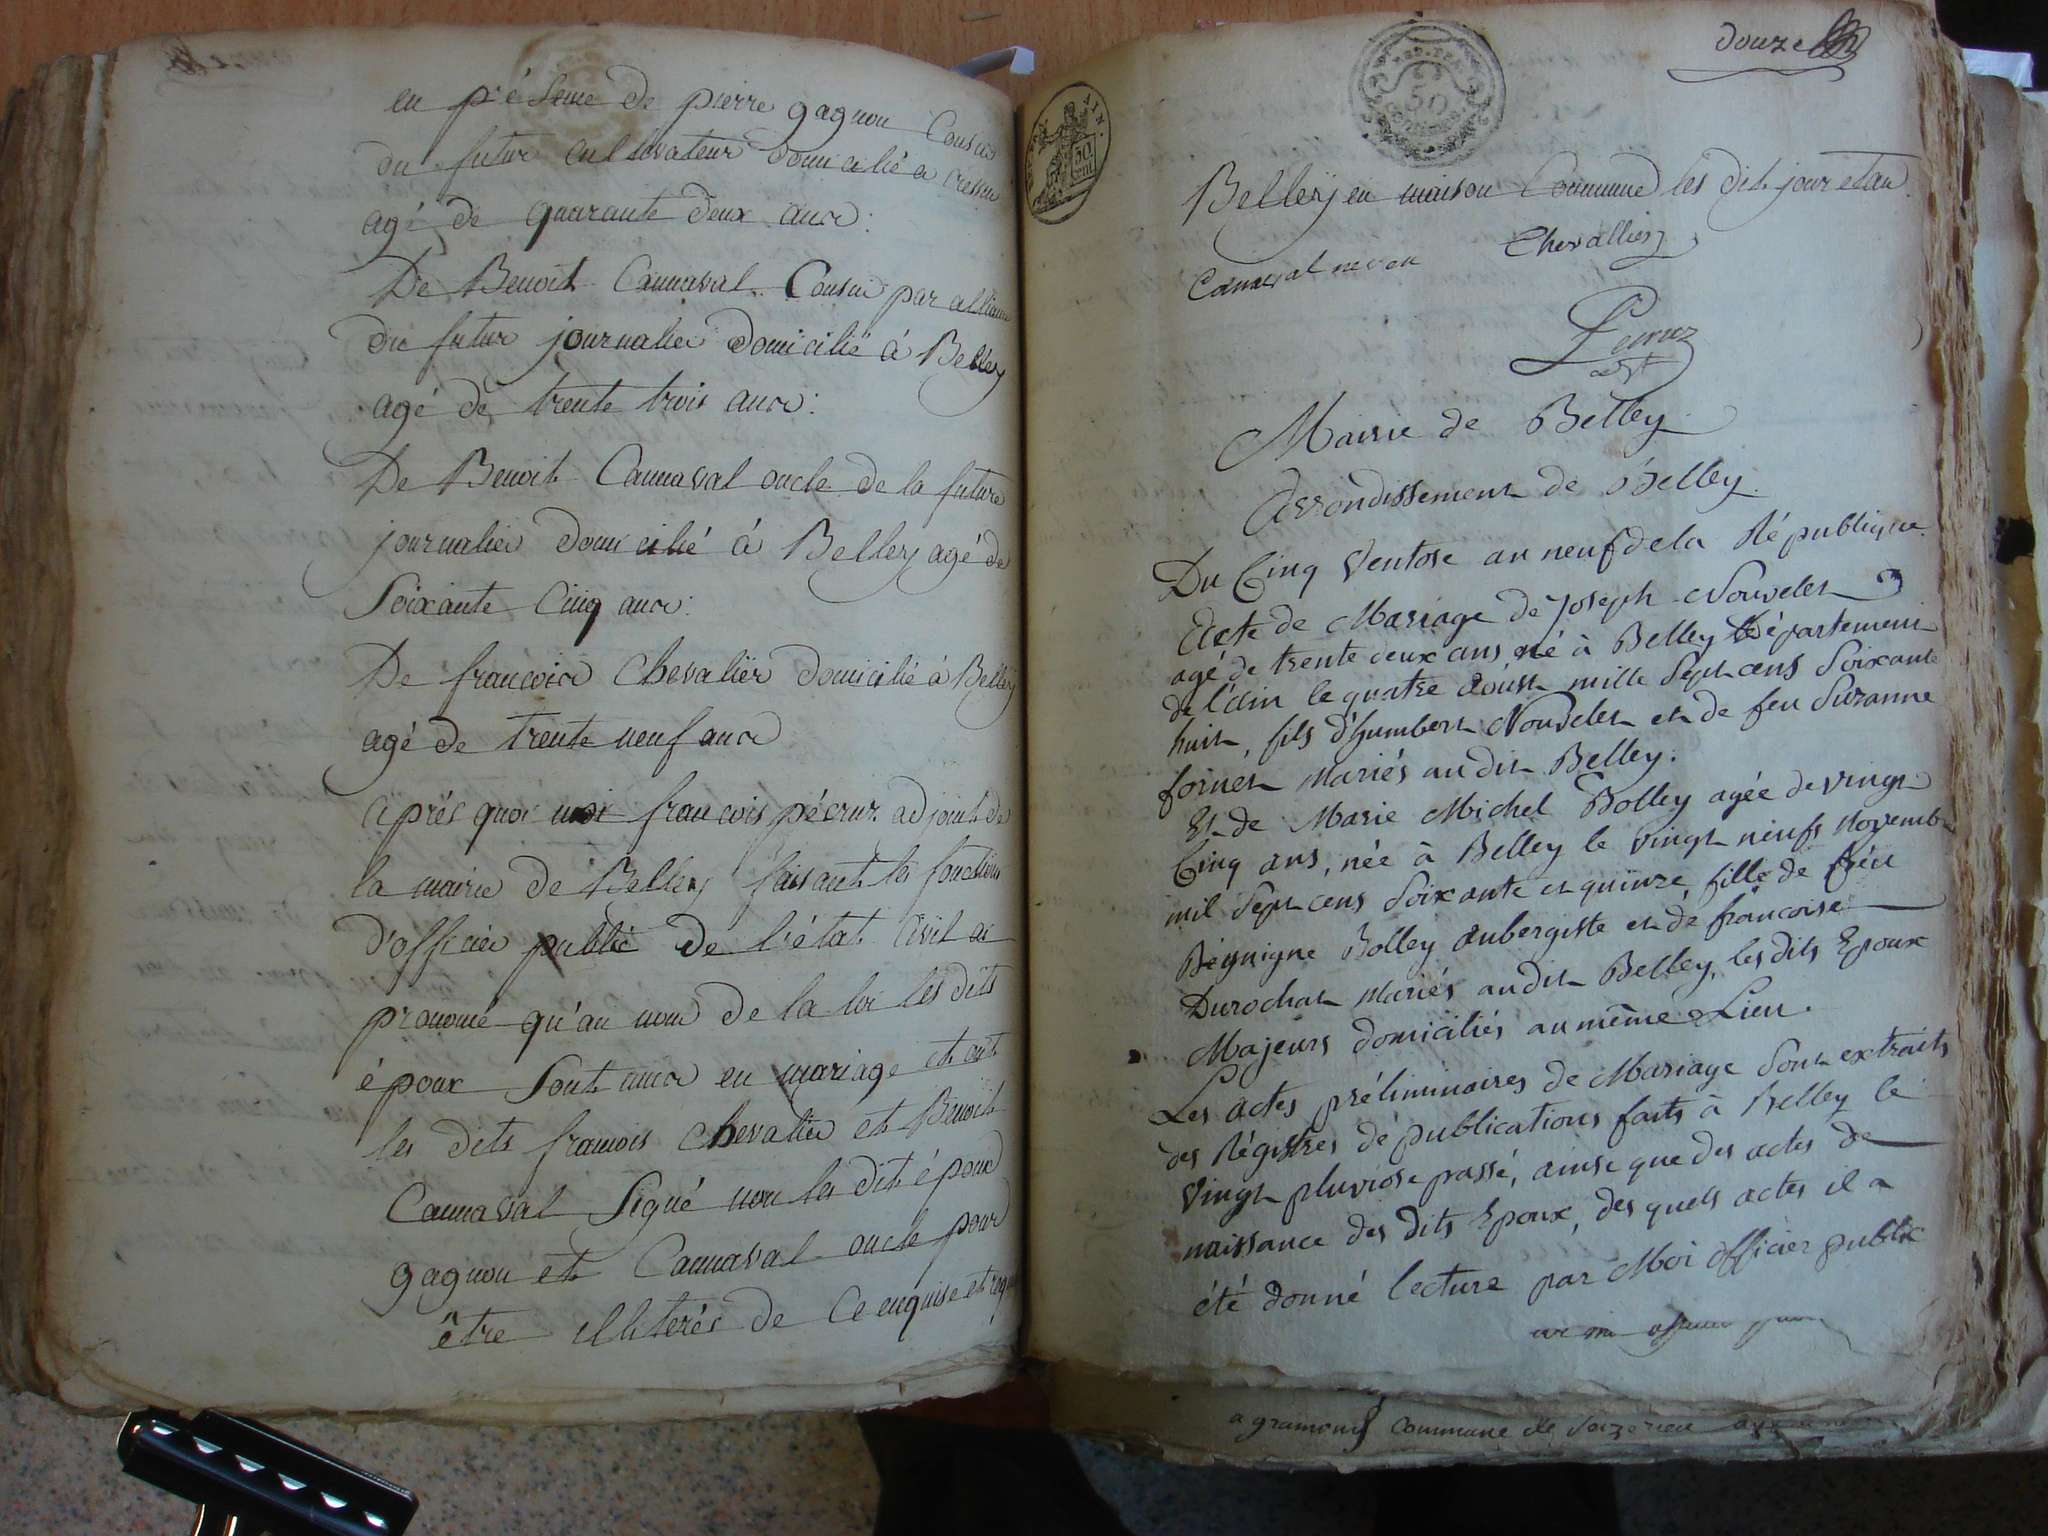 en présence de pierre gagnon Cousin
du futur cultivateur domicilié a cressin
agé de quarante deux ans :
De Benoit Cannaval Cousin par alliance
du futur journalier domicilié à Belley
agé de trente trois ans :
De Benoit Cannaval oncle de la future
journalier domicilié à Belley agé de
Soixante Cinq ans :
De francois Chevalier domicilié à Belley
agé de trente neuf ans
après quoi moi francois pécruz adjoint de
la mairie de Belley faisant les fonctions
d'officier public de l'état Civil ai
prononcé qu'au nom de la loi les dits
époux Sont unis en mariage et ont
les dits francois Chevalier et Benoit
Cannaval Signé non les dit époux
gagnon et Cannaval oncle pour
être illiterés de ce enquis et requis
douze
50
50
Belley en maison Commune les dit jour et an.
Cannaval neveu Chevallier
Pecruz
adjt
Mairie de Belley
Arrondissement de Belley.
Du Cinq Ventose an neuf de la République.
Acte de Mariage de Joseph Nouvelet
agé de trente deux ans, né à Belley Département
de l'ain le quatre aoust mille Sept cens Soixante
huit, fils d'humbert Nouvelet et de feu Suzanne
fornet Mariés au dit Belley.
Et de Marie Michel Bolley agée de vingt
Cinq ans, née à Belley le vingt neufs Novembre
mil Sept cens Soixante et quinze, fille de feu
Beignigne Bolley aubergiste et de françoise
Durochat Mariés au dit Belley, les dits Epoux
Majeurs domiciliés au même Lieu.
Les actes préliminaires de Mariage Sont extraits
des Régistres de publications faits à Belley le
Vingt pluviose passé, ainse que des actes de
naissance des dits Epoux, des quels actes il a
été donné lecture par Moi officier public
a gramont Commune de